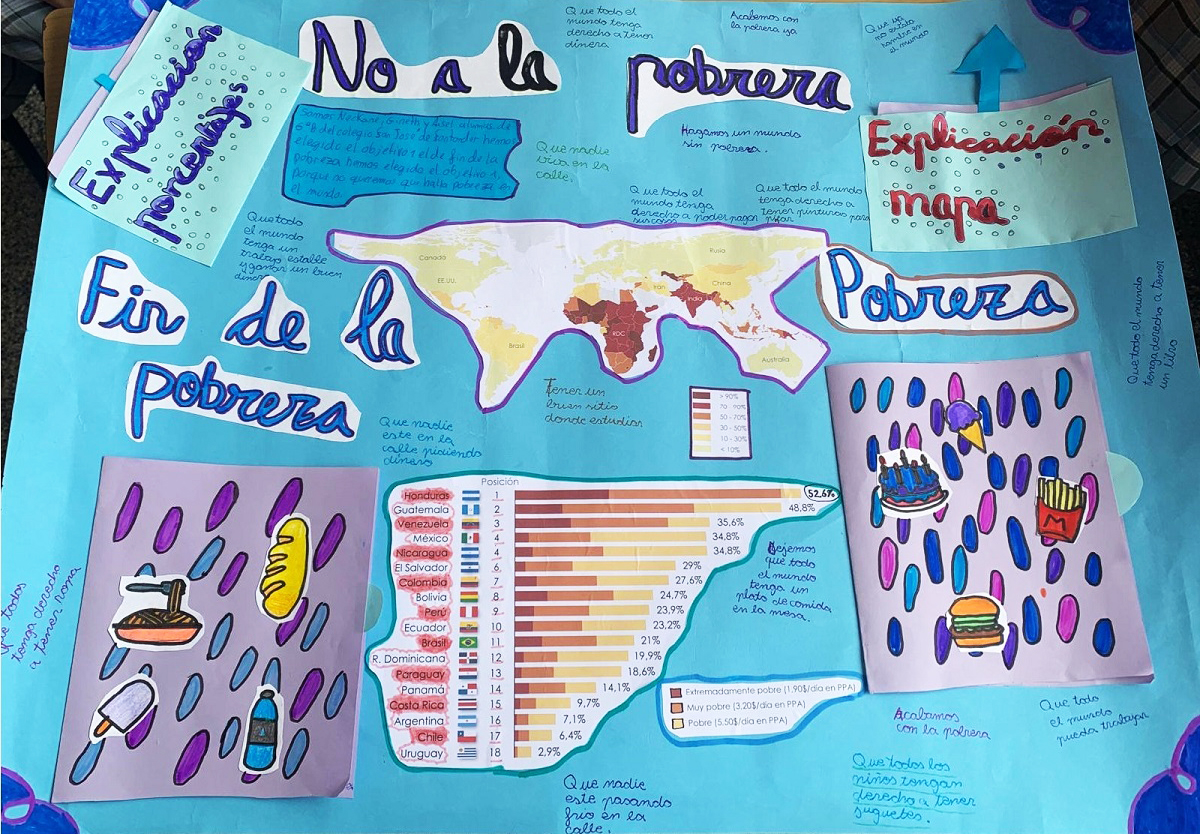 Explicación
porcentajes
No a la
pobreza
Que todo el
mundo tenga
derecho a tener
dinero
Acabemos con
la pobreza ya
Que ya
no exista
hambre en
el mundo
Explicación
mapa
Somos Nerkane, y alumnas de
5ºB del colegio San José de Santander hemos
elegido el objetivo 1 el de fin de la
pobreza hemos elegido el objetivo 1,
porque no queremos que halla pobreza en
el mundo
Que nadie
viva en la
calle.
Hagamos un mundo
sin pobreza.
Que todo el
mundo tenga
derecho a poder pagar
sus cosas
Que todo el mundo
tenga derecho a
tener pinturas para
pintar
Que todo
el mundo
tenga un
trabajo estable
y ganar un buen
dinero
Fin de la
pobreza
Pobreza
Canadá
EE.UU.
Brasil
Rusia
China
Irán
India
RDC
Australia
Que todo el mundo
tenga derecho a tener
un libro
Tener un
buen sitio
donde estudiar
> 90%
70 - 90%
50 - 70%
30 - 50%
10 - 30%
< 10%
Que nadie
este en la
calle pidiendo
dinero
Posición
Honduras 1 52,6%
Guatemala 2 48,8%
Venezuela 3 35,6%
México 4 34,8%
Nicaragua 4 34,8%
El Salvador 6 29%
Colombia 7 27,6%
Bolivia 8 24,7%
Perú 9 23,9%
Ecuador 10 23,2%
Brasil 11 21%
R. Dominicana 12 19,9%
Paraguay 13 18,6%
Panamá 14 14,1%
Costa Rica 15 9,7%
Argentina 16 7,1%
Chile 17 6,4%
Uruguay 18 2,9%
Dejemos
que todo
el mundo
tenga un
plato de comida
en la mesa.
Extremadamente pobre (1.90$/día en PPA)
Muy pobre (3.20$/día en PPA)
Pobre (5.50$/día en PPA)
M
Que todos
tenga derecho
a tener ropa
Acabamos
con la pobreza
Que todo
el mundo
pueda trabajar
Que todos los
niños tengan
derecho a tener
juguetes.
Que nadie
este pasando
frío en la
calle.